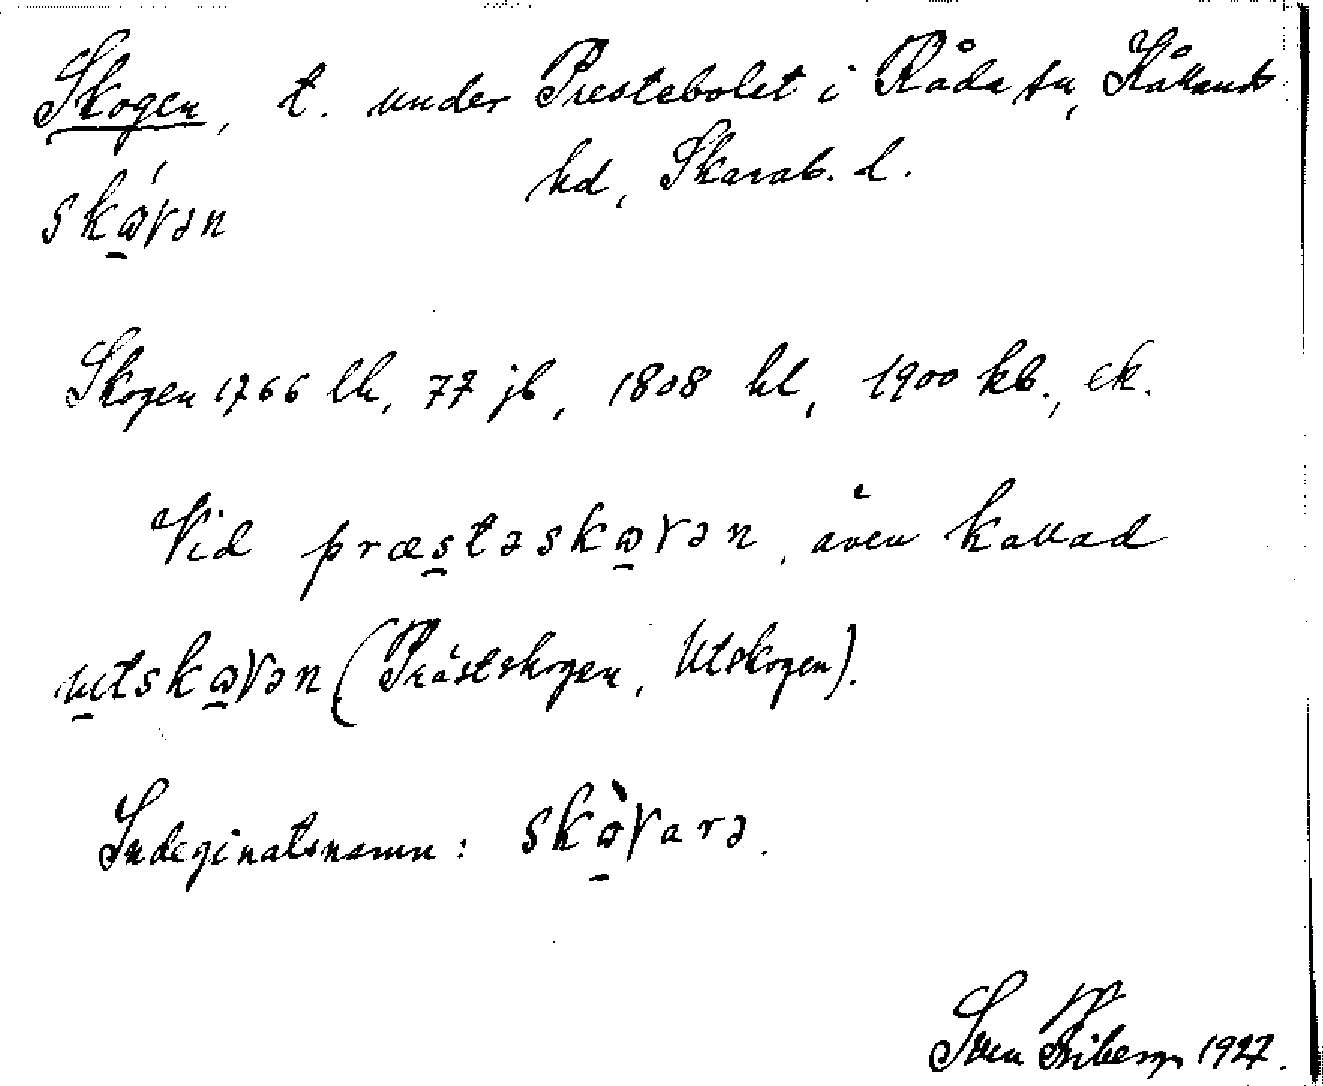 Skogen, t. under Prestebolet i Råda sn, Kållands
hd, Skarab. l.
skɷ́γən
Skogen 1766 lh, 77 jb, 1808 hl, 1900 kb., ek.
Vid præstəskɷγən, även kallad
utskɷγən (Prästskogen, Utskogen).
Indeginatsnamn: skɷ̀γarə.
Sven Friberg 1927.